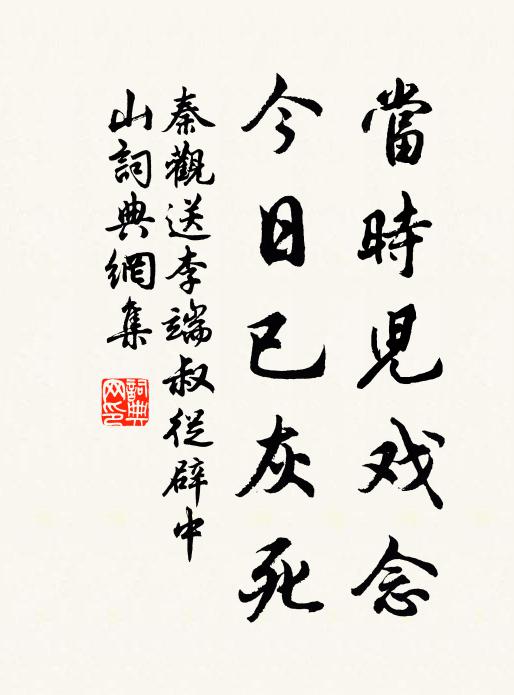 當時児戏念
今日已灰死
秦觀送李端叔從辟中
山詞典網集
詞典
网印